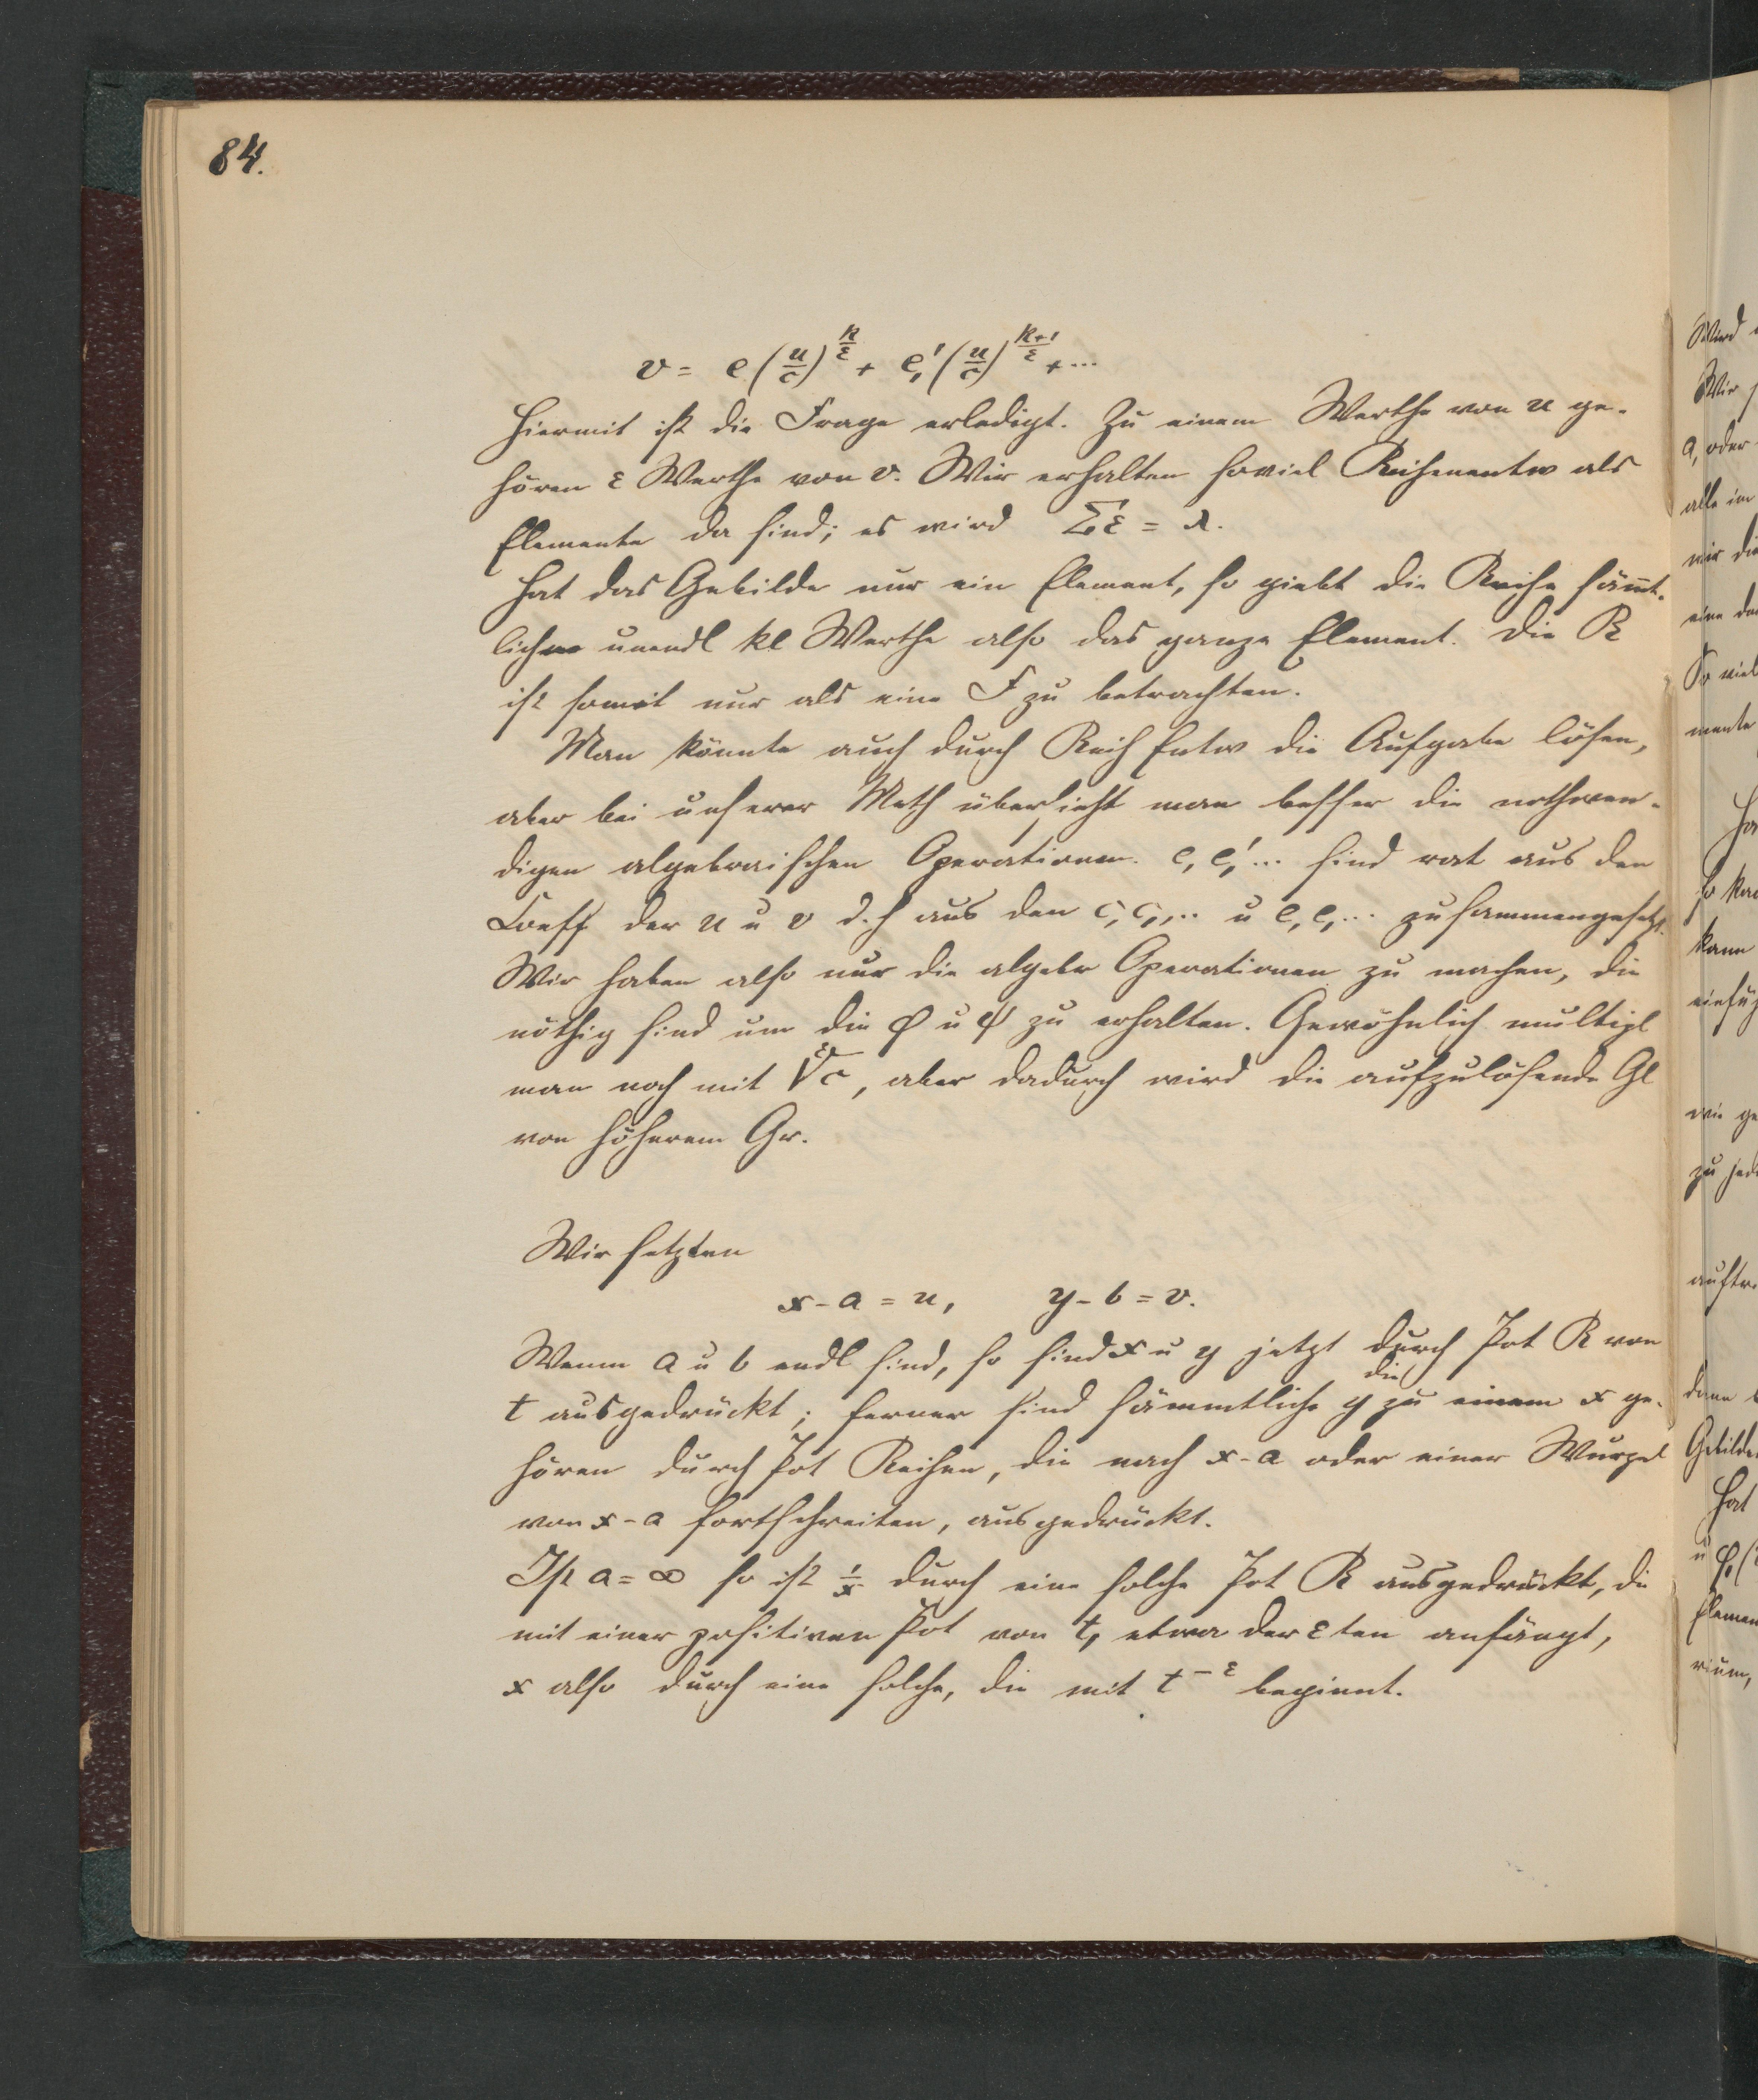 84.
v = e (u/c)^{k/ε} + e₁' (u/c)^{(k+1)/ε} + ...
Hiermit ist die Frage erledigt. Zu einem Werthe von u ge-
hören ε Werthe von v. Wir erhalten soviel Reihenentw als
Elemente da sind; es wird Σε = λ.
Hat das Gebilde nur ein Element, so giebt die Reihe säm̄t-
liche unendl kl Werthe also das ganze Element. Die R
ist somit nur als eine F zu betrachten.
Man könnte auch durch Reih Entw die Aufgabe lösen,
aber bei unserer Meth übersieht man besser die nothwen-
digen algebraischen Operationen. e, e₁' ... sind rat aus den
Coeff der u u v d. h aus den c, c₁, ... u e, e₁ ... zusammengesetzt.
Wir haben also nur die algebr Operationen zu machen, die
nöthig sind um die φ u ψ zu erhalten. Gewöhnlich multipl
man noch mit ᵋ√c, aber dadurch wird die aufzulösende Gl
von höherem Gr.
Wir setzten
x - a = u, y - b = v.
Wenn a u b endl sind, so sind x u y jetzt durch Pot R von
t ausgedrückt; ferner sind sämmtliche y die zu einem x ge-
hören durch Pot Reihen, die nach x - a oder einer Wurzel
von x - a fortschreiten, ausgedrückt.
Ist a = ∞ so ist 1/x durch eine solche Pot R ausgedrückt, die
mit einer positiven Pot von t, etwa der εten anfängt,
x also durch eine solche, die mit t^{-ε} beginnt.
Wird
Wir
a, oder
alle im
wir die
eine
So viel
mente
Ha
so kan
kann
einfüh
wie ge
zu jed
auftre
dann
Gebilde
Hat
u
Elemen